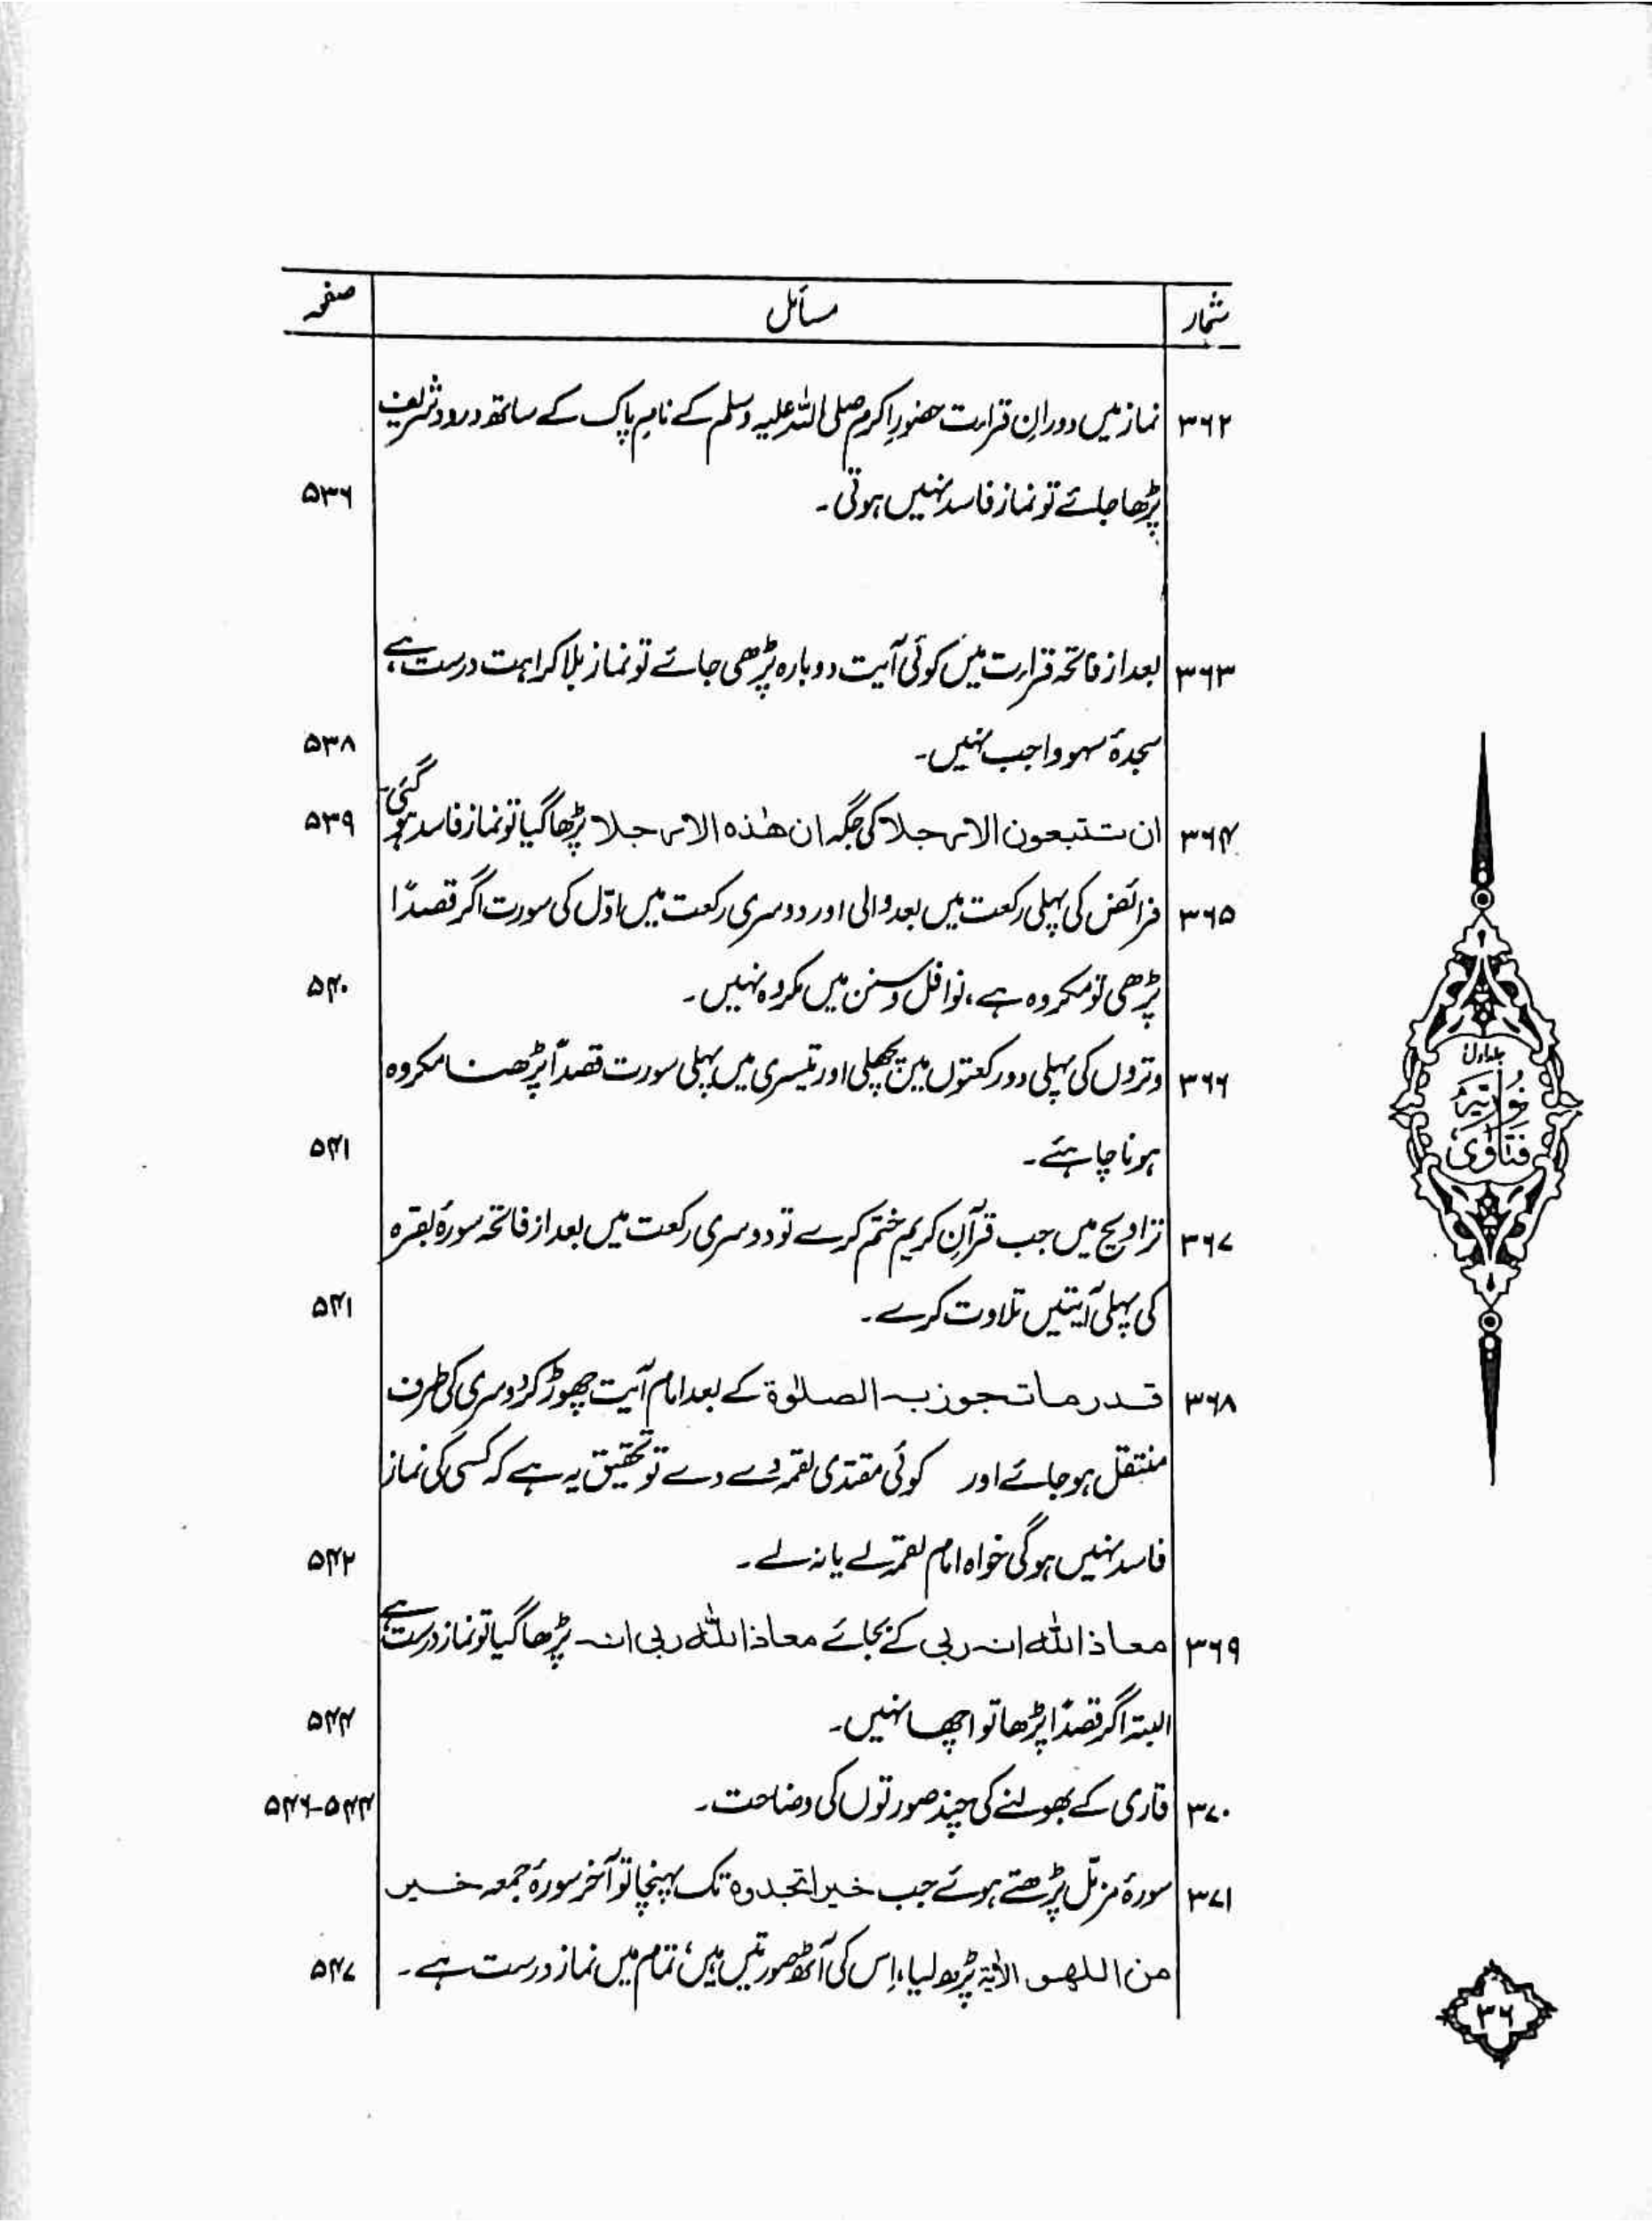 شمار مسائل صفحہ
۳۶۲ نماز میں دورانِ قرارت حضورِ اکرم صلی اللہ علیہ وسلم کے نامِ پاک کے ساتھ درود شریف
پڑھا جائے تو نماز فاسد نہیں ہوتی۔ ۵۳۶
۳۶۳ بعد از فاتحہ قرارت میں کوئی آیت دوبارہ پڑھی جائے تو نماز بلا کراہت درست ہے،
سجدۂ سہو واجب نہیں۔ ۵۳۸
۳۶۴ ان تتبعون الا رجلا کی جگہ ان ھٰذہ الا رجلا پڑھا گیا تو نماز فاسد ہو گئی۔ ۵۳۹
۳۶۵ فرائض کی پہلی رکعت میں بعد والی اور دوسری رکعت میں اوّل کی سورت اگر قصدًا
پڑھی تو مکروہ ہے، نوافل و سنن میں مکروہ نہیں۔ ۵۴۰
۳۶۶ وتروں کی پہلی دو رکعتوں میں پچھلی اور تیسری میں پہلی سورت قصداً پڑھنا مکروہ
ہونا چاہئے۔ ۵۴۱
۳۶۷ تراویح میں جب قرآنِ کریم ختم کرے تو دوسری رکعت میں بعد از فاتحہ سورۂ بقرہ
کی پہلی آیتیں تلاوت کرے۔ ۵۴۱
۳۶۸ قدر ما تجوز بہ الصلوٰۃ کے بعد امام آیت چھوڑ کر دوسری کی طرف
منتقل ہو جائے اور کوئی مقتدی لقمہ دے دے تو تحقیق یہ ہے کہ کسی کی نماز
فاسد نہیں ہوگی خواہ امام لقمہ لے یا نہ لے۔ ۵۴۲
۳۶۹ معاذ اللہ انہ ربی کے بجائے معاذ اللہ ربی انہ پڑھا گیا تو نماز درست ہے
البتہ اگر قصدًا پڑھا تو اچھا نہیں۔ ۵۴۴
۳۷۰ قاری کے بھولنے کی چند صورتوں کی وضاحت۔ ۵۴۴-۵۴۶
۳۷۱ سورۂ مزمّل پڑھتے ہوئے جب خیرا تجدوہ تک پہنچا تو آخر سورۂ جمعہ خیر
من اللھو الآیۃ پڑھ لیا، اِس کی آٹھ صورتیں ہیں، تمام میں نماز درست ہے۔ ۵۴۷
جلد اول
نُوریّہ
فتاوٰی
۳۶